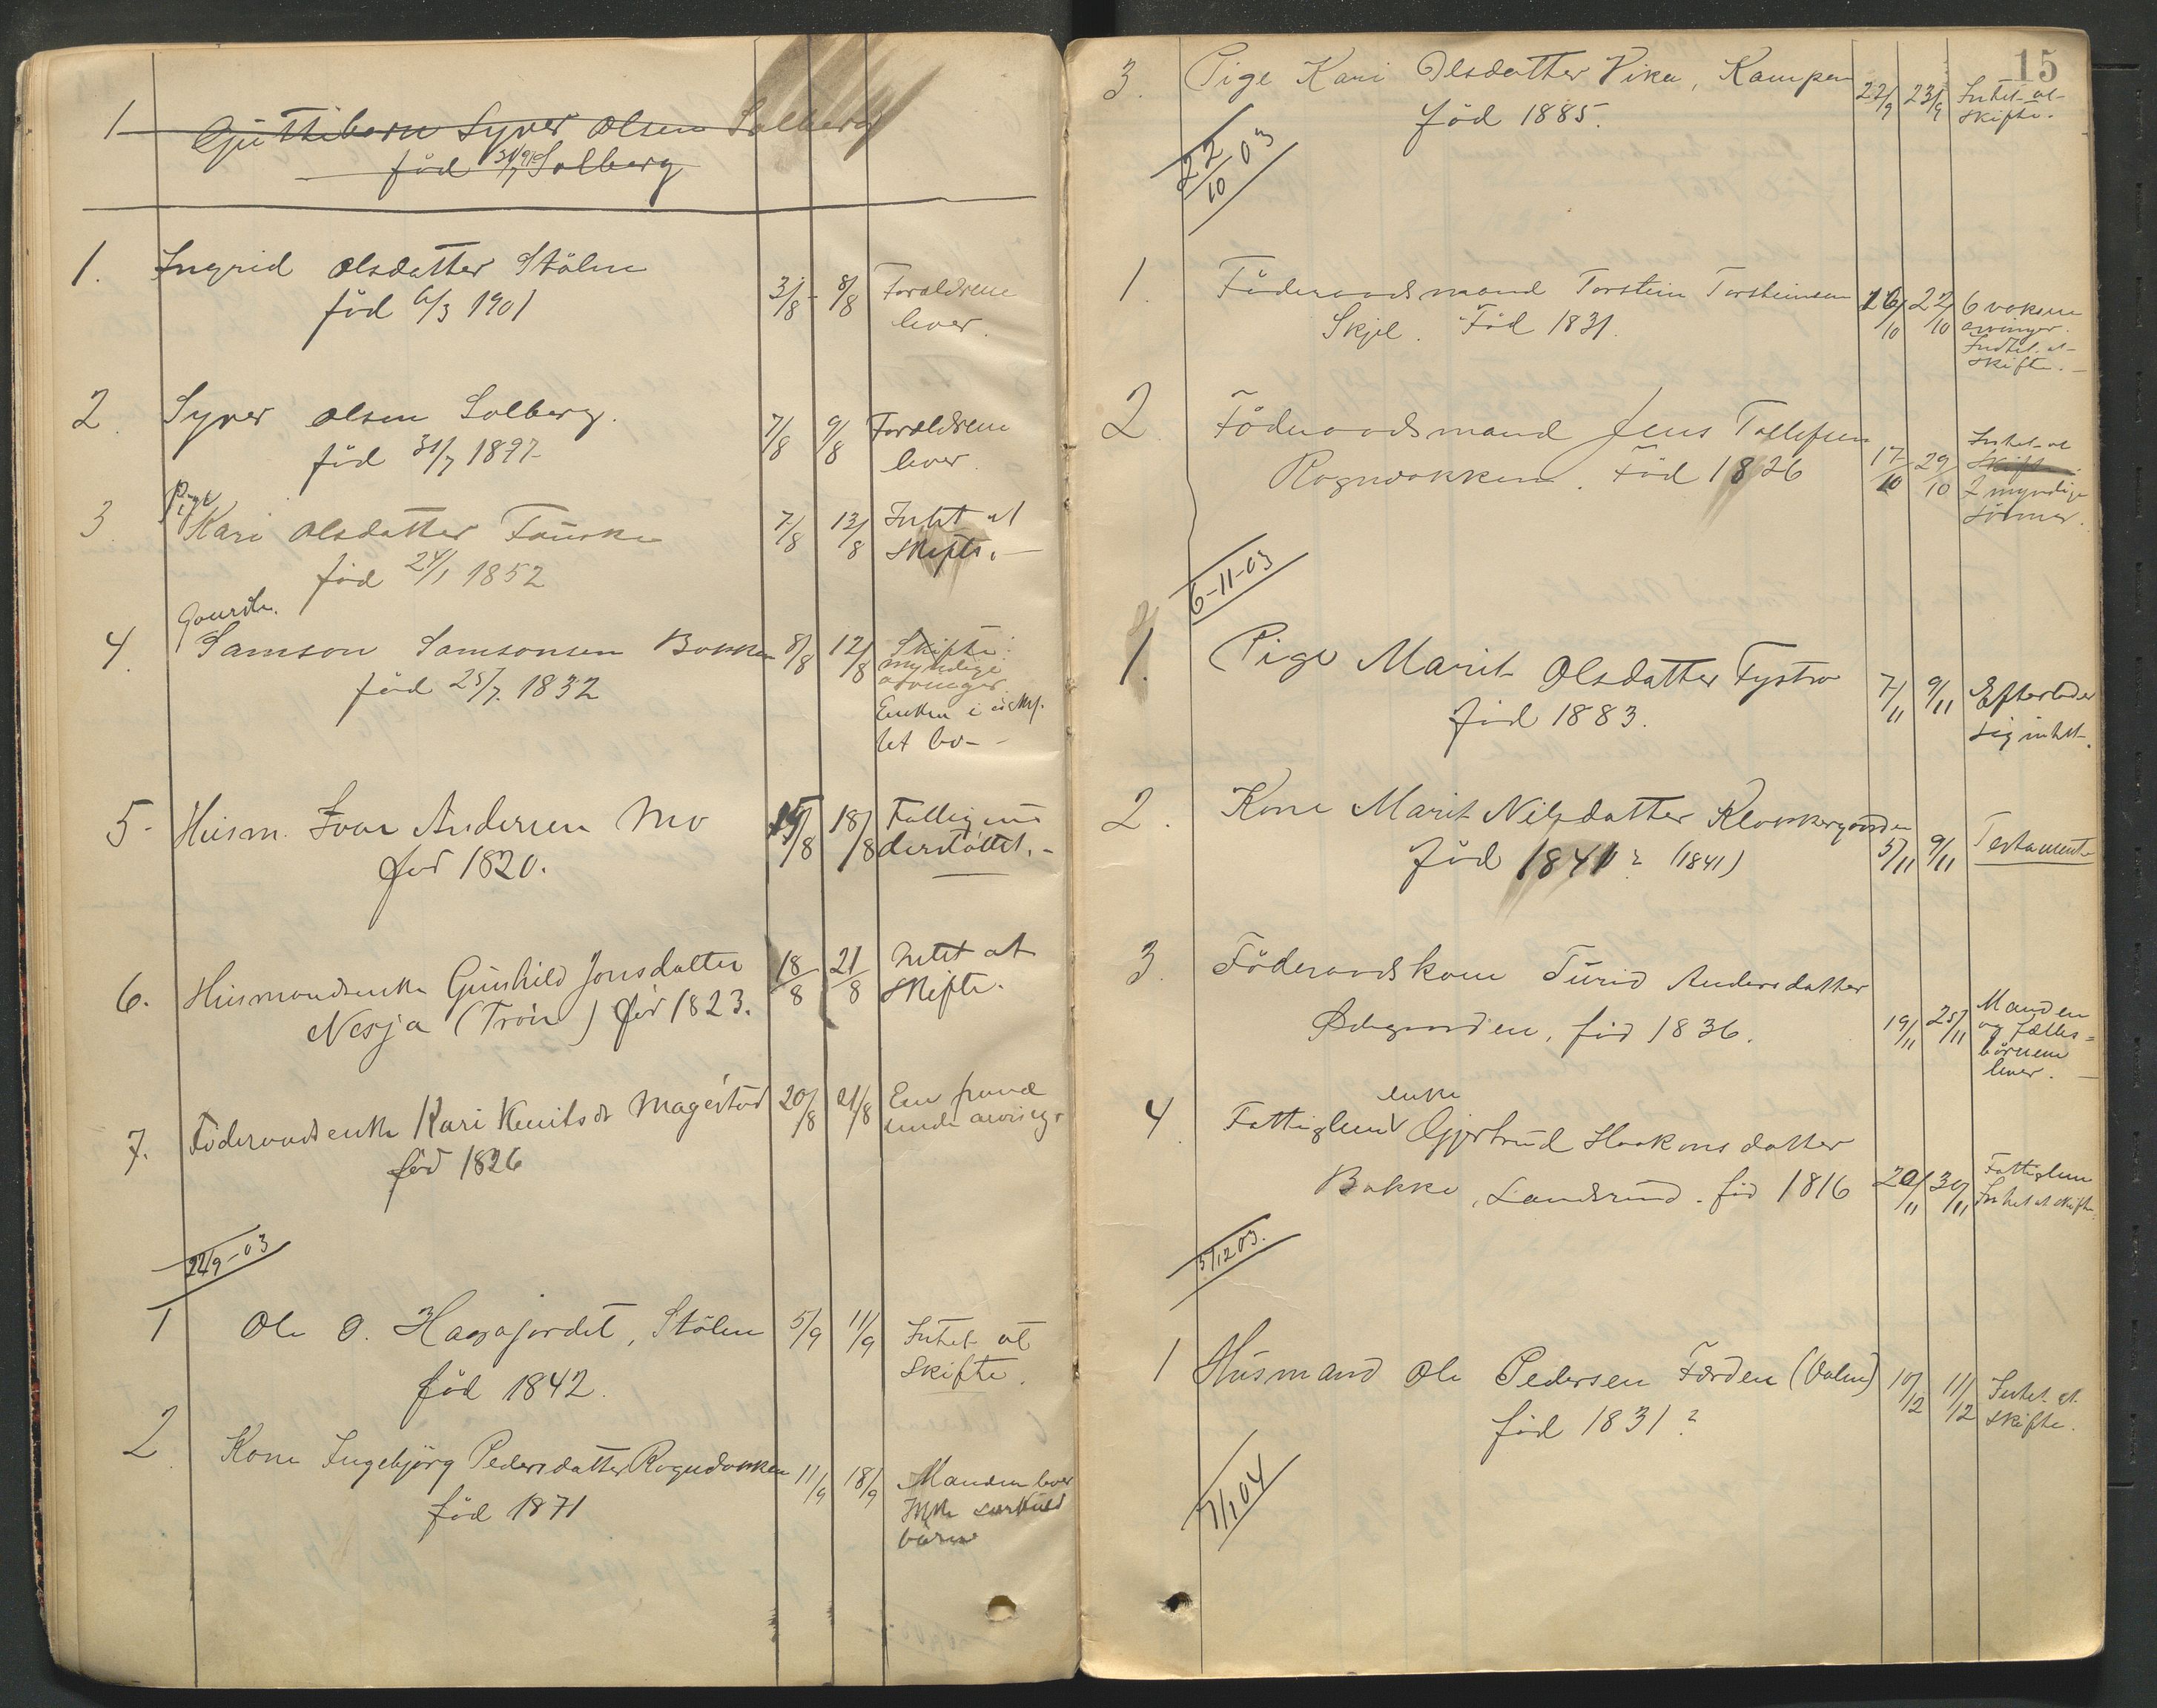 1 Guttebarn Syver Olsen Solberg
född 31/7 97 Solberg
1. Ingrid Olsdatter Stölen 31/8 8/8 Forældrene
född 6/3 1901 lever.
2. Syver Olsen Solberg. 7/8 9/8 Forældrene
föd 31/7 1897 lever.
Pige
3. Kari Olsdatter 7/8 13/8 Intet at
föd 24/1 1852 skifte.
Gaurdb.
4. Samson Samsonsen Bakken 8/8 12/8 Skifte:
föd 25/7 1832 myndige
arvinger.
Enken i uskif-
tet bo -
5. Husm. Ivar Andersen Mo 15/8 18/8 Fattigun
föd 1820. derstöttet. -
6. Husmandsenke Gunhild Jonsdatter 18/8 21/8 Intet at
Nesja (Tröen) föd 1823. skifte.
7. Föderaadsenke Kari Knutsdt Magestad 20/8 21/8 En fravæ
föd 1826 rende arving.
22/9-03
1 Ole O. Hagajordet, Stölen 5/9 11/9 Intet at
föd 1842. skifte.
2 Kone Ingebjörg Pedersdatter Rognebakken 11/9 18/9 Manden lever
föd 1871 Ikke særkuld
börn
15
3. Pige Kari Olsdatter Vika, Kampen 22/9 23/9 Intet at
föd 1885. skifte.
22/10 03
1. Föderaadsmand Torstein Torsteinsen 16/10 22/10 6 voksne
Skjel. Föd 1831. arvinger.
Indtet at
skifte. -
2. Föderaadsmand Jens Tollefsen 17/10 29/10 Intet at
Rognebakken. Föd 1826 skift
2 myndige
sönner.
6-11-03
1. Pige Marit Olsdatter Tystro 7/11 9/11 Efterlader
föd 1883. sig intet.
2. Kone Marit Nilsdatter Klokkergaarden 5/11 9/11 Testament
föd 1841? (1841)
3. Föderaadskone Turid Andersdatter 19/11 25/11 Manden
Ödegaarden, föd 1836. og fælles=
börnene
lever. -
enke
4. Fattiglem Gjertrud Haakonsdatter 20/11 30/11 Fattiglem
Bakke, Sandsrud. föd 1816 Intet at skifte.
5/12 03.
1 Husmand Ole Pedersen Færden (Dalen) 10/12 11/12 Intet at
föd 1831? skifte.
7/1 04